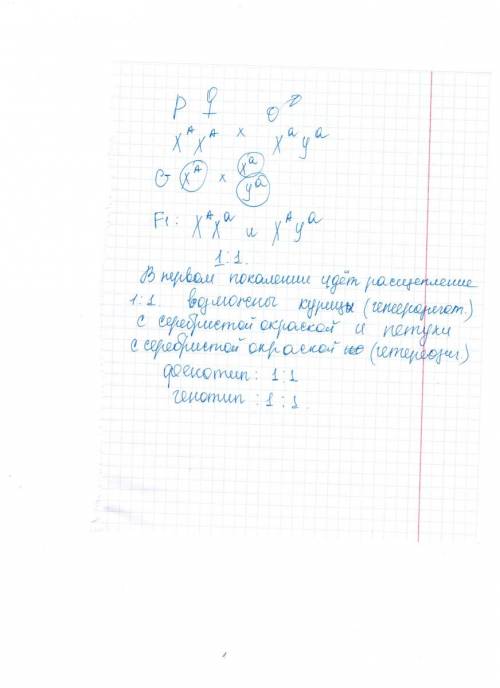 P ♀ ♂
X^A X^A × X^a Y^a
G X^A × X^a Y^a
F1: X^A X^a и X^A Y^a
1:1.
В первом поколении идёт расщепление
1:1. возможны курицы
с серебристой окраской и петухи
с серебристой окраской
фенотип: 1:1
генотип: 1:1.